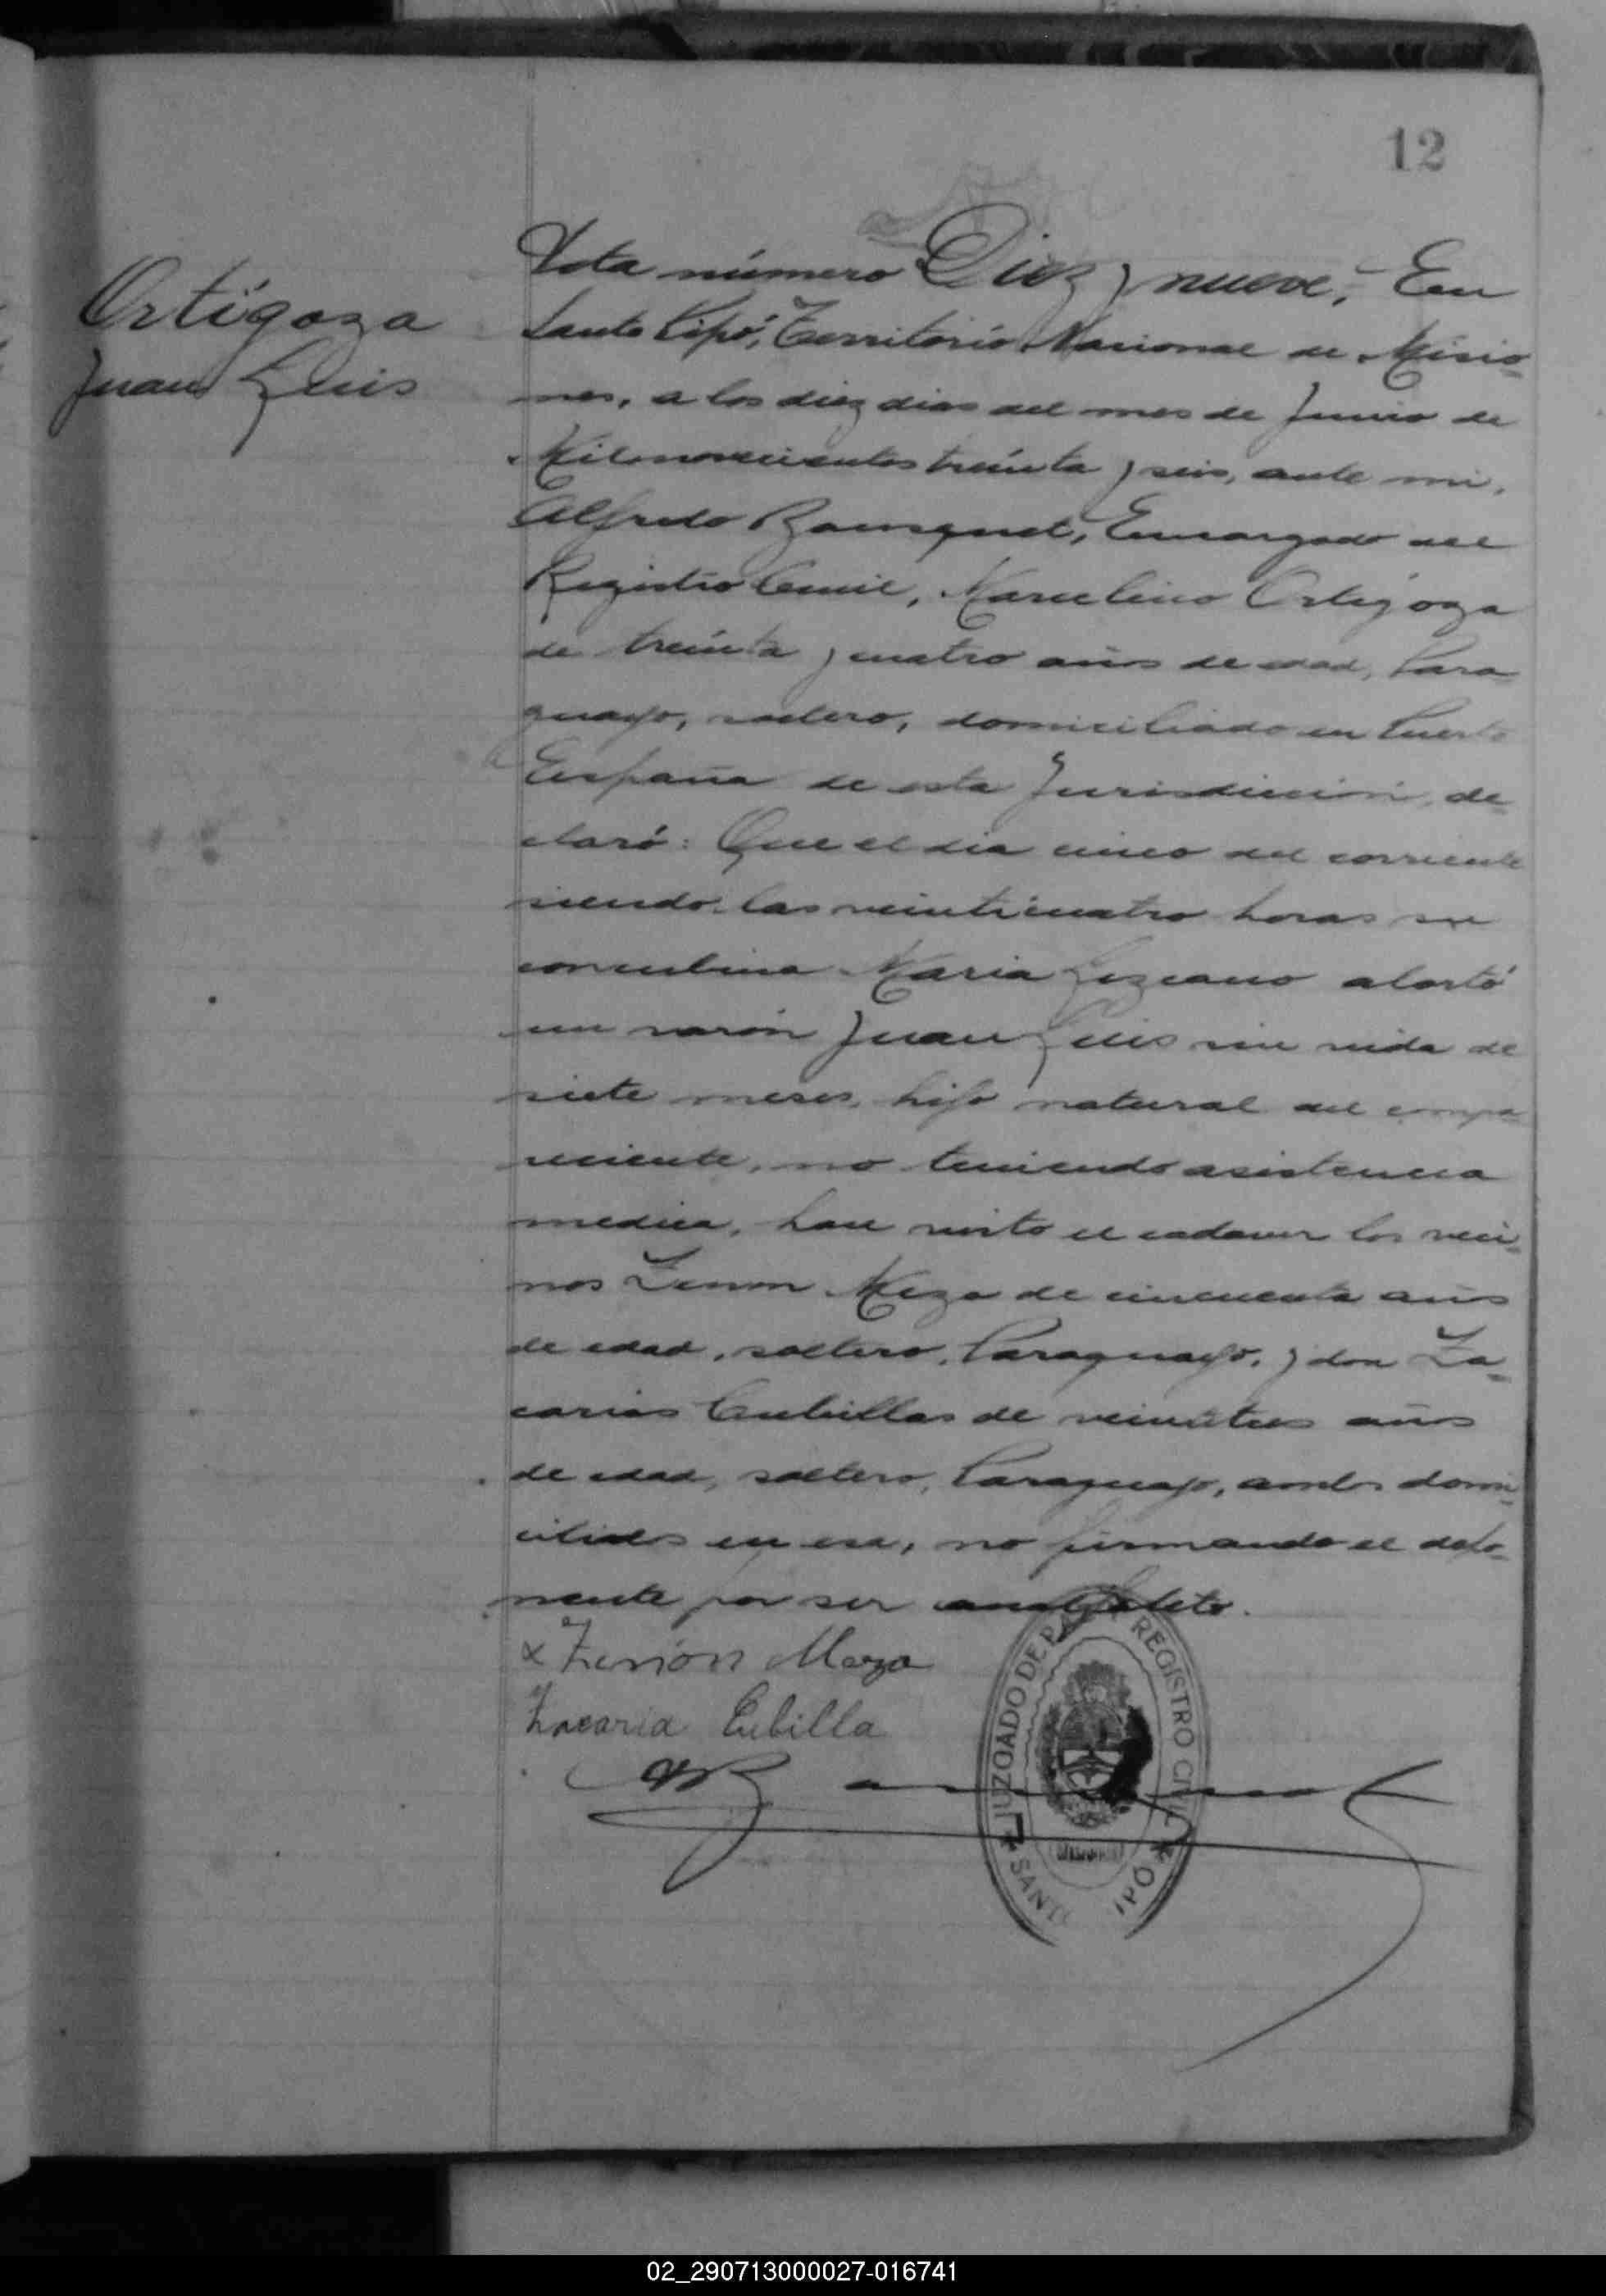 12
Ortigoza
Juan Luis
Acta número Diez y nueve, En
Santo Pipó, Territorio Nacional de Misio-
nes, a los diez dias del mes de Junio de
Mil novecientos treinta y seis, ante mi,
Alfredo Encargado del
Registro Civil, Marcelino Ortigoza
de treinta y cuatro años de edad, Para-
guayo, soltero, domiciliado en Puerto
España de esta Jurisdiccion, de-
claró: Que el dia cinco del corriente
siendo las veinticuatro horas su
concubina Maria Lezcano abortó
un varón Juan Luis sin vida de
siete meses, hijo natural del compa-
reciente, no teniendo asistencia
medica, han visto el cadaver los veci-
nos Zenon Meza de cincuenta años
de edad, soltero, Paraguayo, y don Za-
carias Cubillas de veintitres años
de edad, soltero, Paraguayo, ambos domi-
ciliados en esa, no firmando el depo-
nente por ser analfabeto.
x Zenón Meza
Zacaria Cubilla
JUZGADO DE PAZ REGISTRO CIVIL
SANTO PIPÓ
02_290713000027-016741